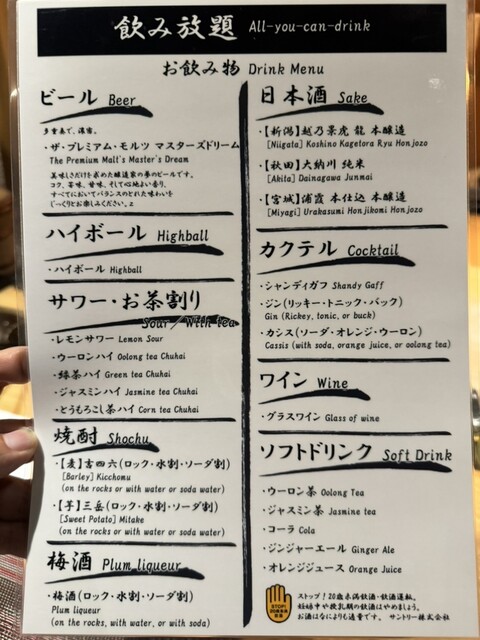 飲み放題 All-you-can-drink
お飲み物 Drink Menu
ビール Beer
多重奏で、濃密。
・ザ・プレミアム・モルツ マスターズドリーム
The Premium Malt's Master's Dream
美味しさだけを求めた醸造家の夢のビールです。
コク、苦味、甘味、そして心地よい香り、
すべてにおいてバランスのとれた味わいを
じっくりとお楽しみください。
ハイボール Highball
・ハイボール Highball
サワー・お茶割り
Sour／With tea
・レモンサワー Lemon Sour
・ウーロンハイ Oolong tea Chuhai
・緑茶ハイ Green tea Chuhai
・ジャスミンハイ Jasmine tea Chuhai
・とうもろこし茶ハイ Corn tea Chuhai
焼酎 Shochu
・【麦】吉四六(ロック・水割・ソーダ割)
[Barley] Kicchomu
(on the rocks or with water or soda water)
・【芋】三岳(ロック・水割・ソーダ割)
[Sweet Potato] Mitake
(on the rocks or with water or soda water)
梅酒 Plum liqueur
・梅酒(ロック・水割・ソーダ割)
Plum liqueur
(on the rocks, with water, or with soda)
日本酒 Sake
・【新潟】越乃景虎 龍 本醸造
[Niigata] Koshino Kagetora Ryu Honjozo
・【秋田】大納川 純米
[Akita] Dainagawa Junmai
・【宮城】浦霞 本仕込 本醸造
[Miyagi] Urakasumi Honjikomi Honjozo
カクテル Cocktail
・シャンディガフ Shandy Gaff
・ジン(リッキー・トニック・バック)
Gin (Rickey, tonic, or buck)
・カシス(ソーダ・オレンジ・ウーロン)
Cassis (with soda, orange juice, or oolong tea)
ワイン Wine
・グラスワイン Glass of wine
ソフトドリンク Soft Drink
・ウーロン茶 Oolong Tea
・ジャスミン茶 Jasmine tea
・コーラ Cola
・ジンジャーエール Ginger Ale
・オレンジジュース Orange Juice
STOP!
ストップ！20歳未満飲酒・飲酒運転。
妊娠中や授乳期の飲酒はやめましょう。
お酒はなによりも適量です。 サントリー株式会社